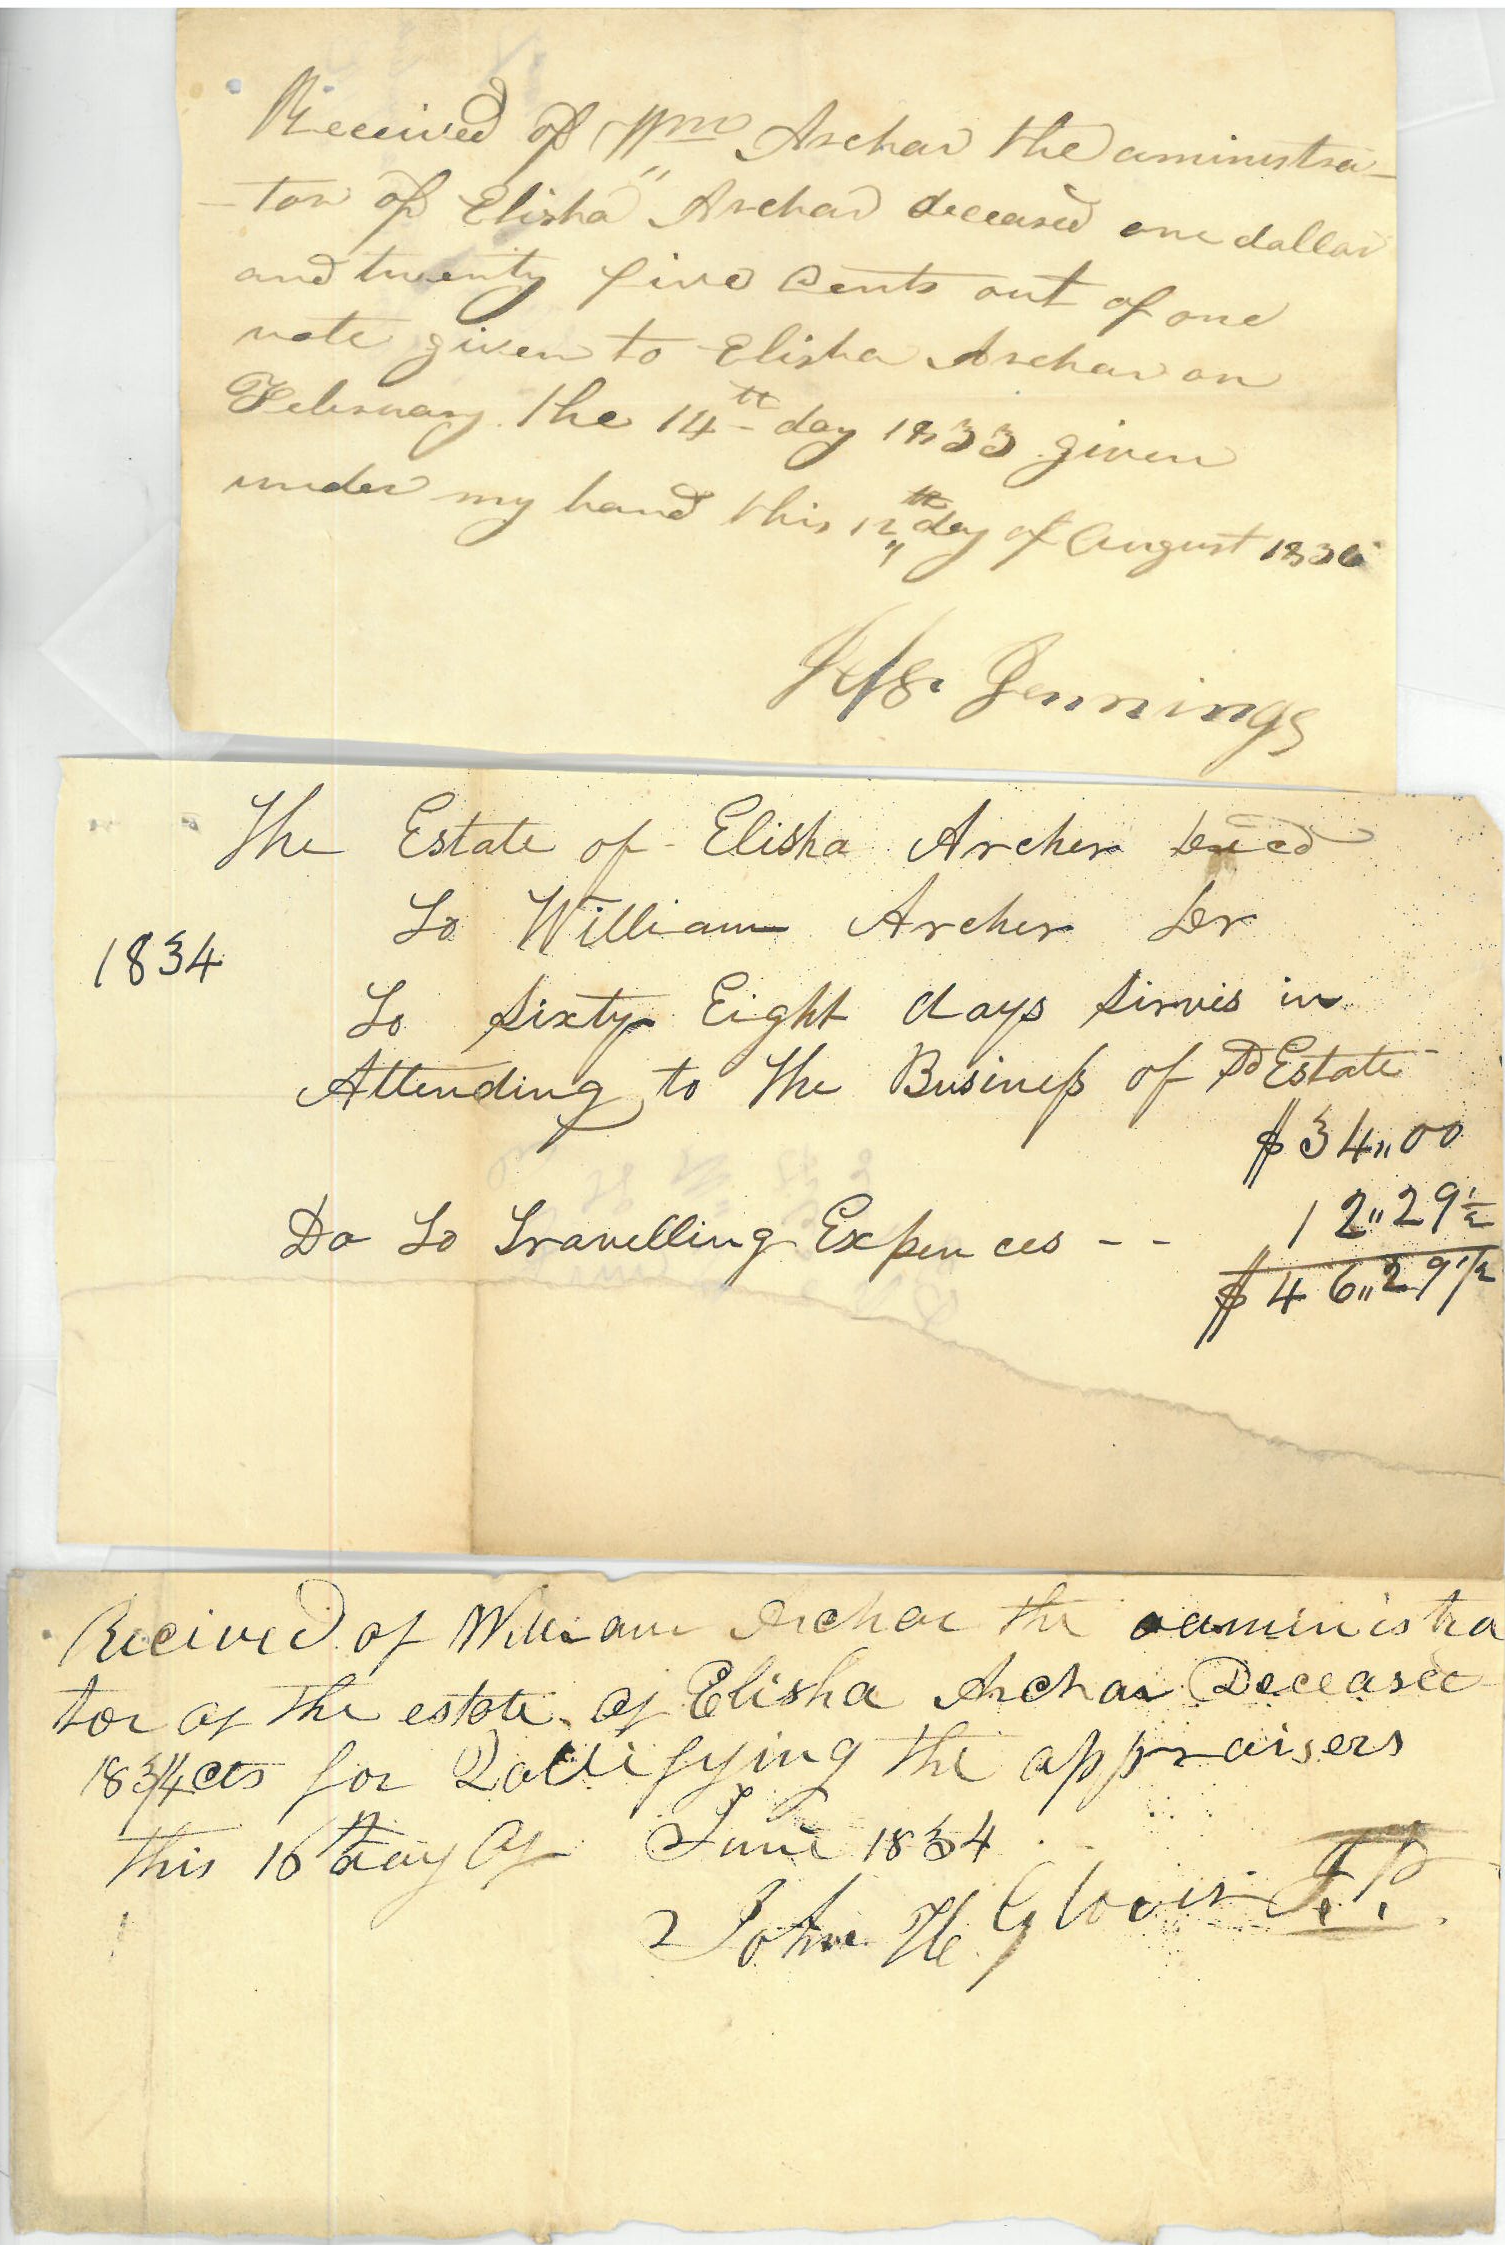 Received of Wm Archar the aministra-
-tor of Elisha Archar deceased one dollar
and twenty five Cents out of one
note given to Elisha Archar on
February the 14th day 1833 given
under my hand this 12th day of August 1836
Jennings
The Estate of Elisha Archer Deced
To William Archer Dr
1834
To Sixty Eight days Sirvis in
Attending to the Business of Sd Estate
$34,,00
Do To Travelling Expences -- 12,,29 1/2
$46,,29 1/2
Recived of William Archar the aministra
tor of the estate of Elisha Archar Deceased
18 3/4 cts for Qallifying the appraisers
this 16th day of June 1834
John H Glover J.P.